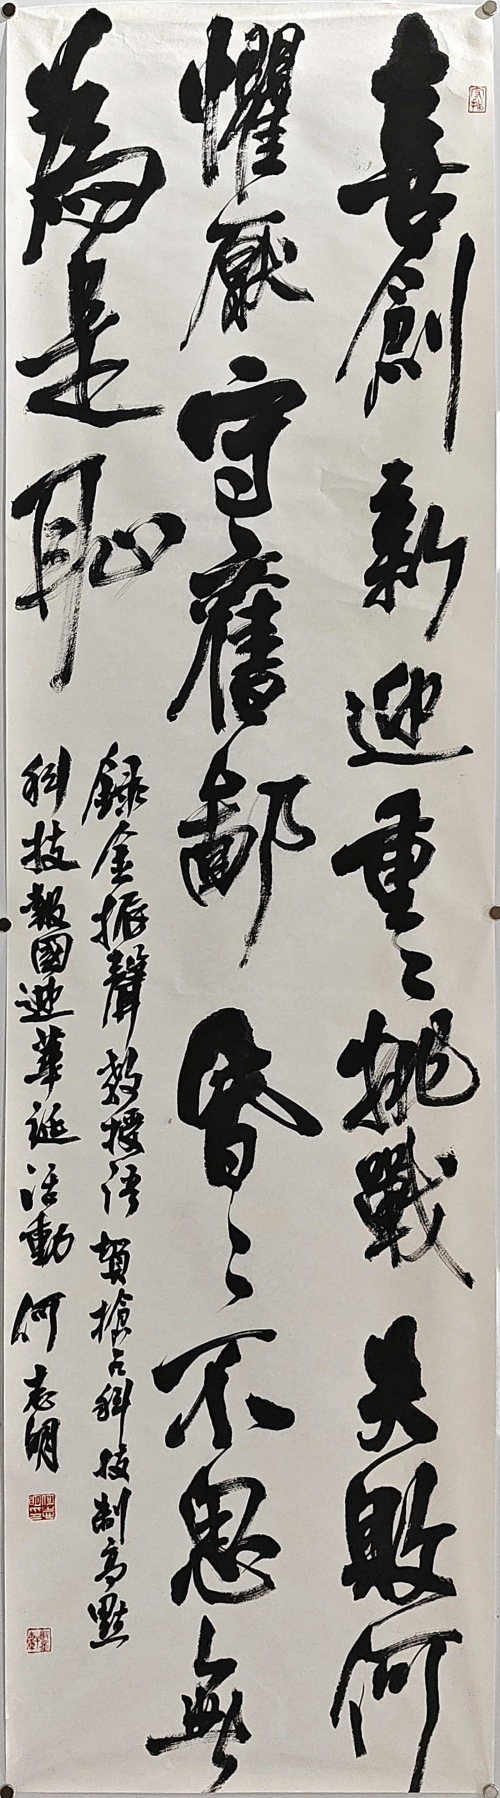 喜創新迎重〻挑戰失敗何
懼厭守舊鄙昏〻不思無
為是恥
錄金振聲教授语賀搶占科技制高點
科技報國迎華誕活動何志明